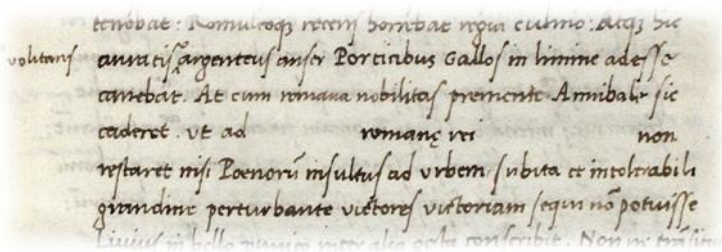 tenebat: Romuleoq; recens horrebat regia culmo: Atq; hic
volitans auratis argenteus anser Porticibus Gallos in limine adesse
canebat. At cum romana nobilitas premente Annibale sic
caderet. ut ad romanę rei non
restaret nisi Poenorū insultus ad urbem subita et intolerabili
grandine perturbante uictores uictoriam sequi nō potuisse
Liuius in bello punico inter alia gesta conscribit. Non ne